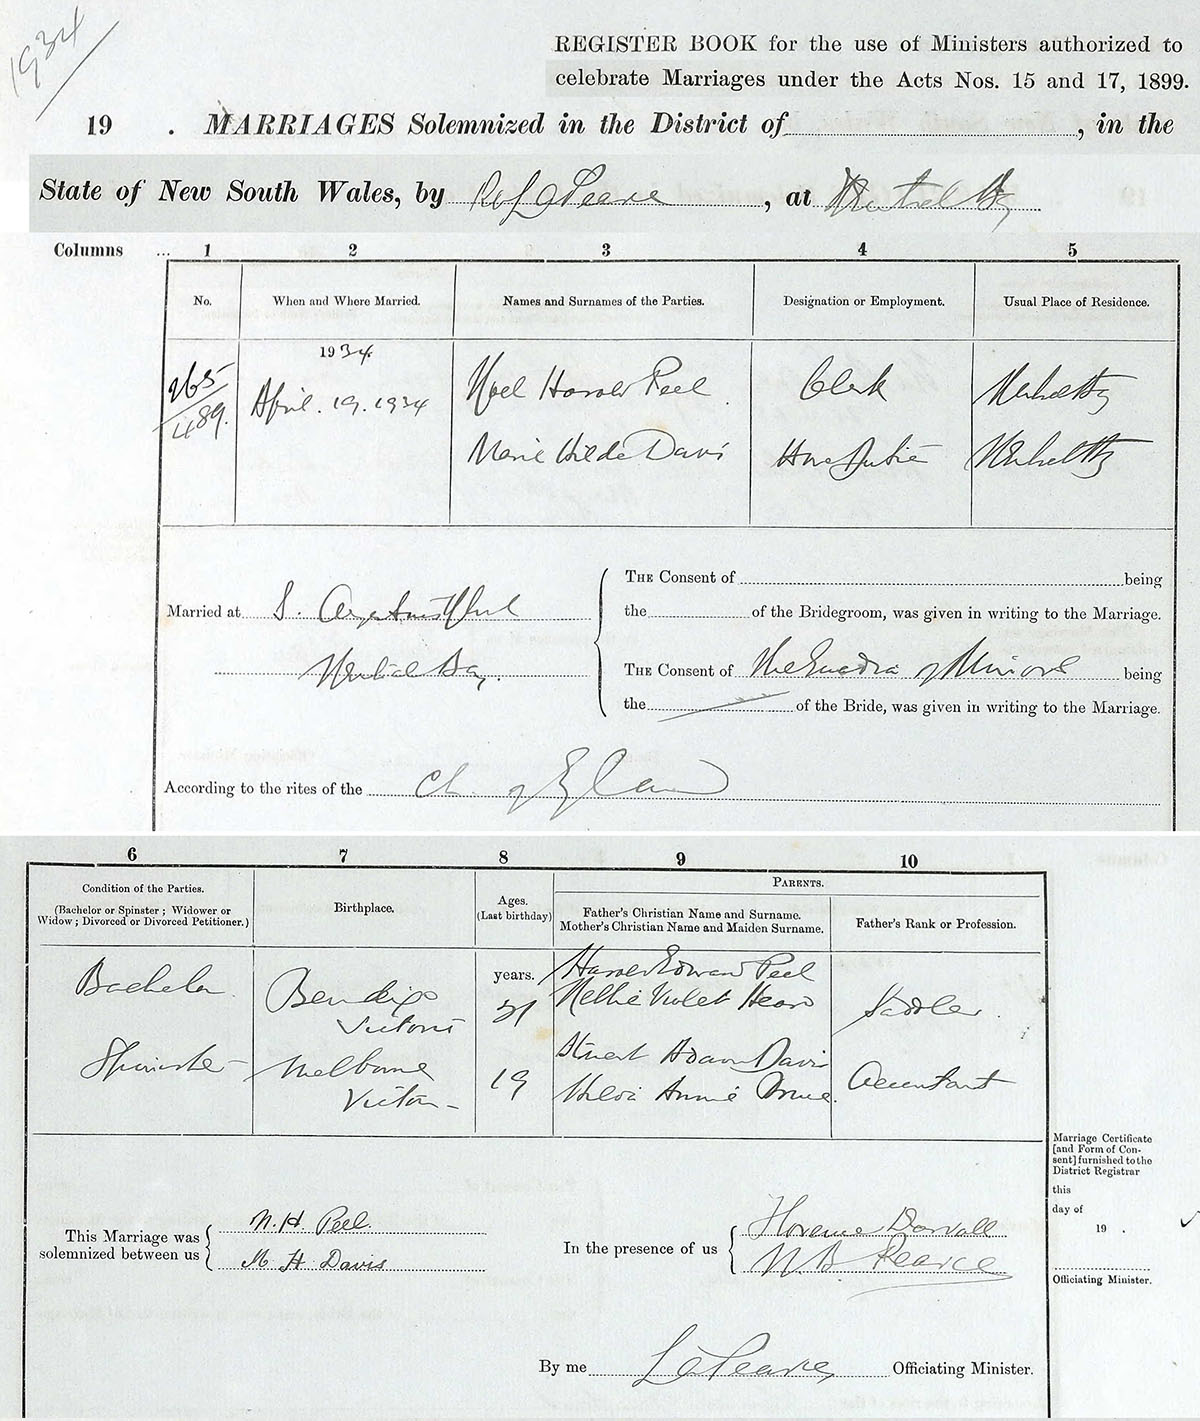 1934
REGISTER BOOK for the use of Ministers authorized to
celebrate Marriages under the Acts Nos. 15 and 17, 1899.
19 . MARRIAGES Solemnized in the District of , in the
State of New South Wales, by Pearce , at
Columns ... 1 2 3 4 5
No. When and Where Married. Names and Surnames of the Parties. Designation or Employment. Usual Place of Residence.
1934.
265/489. April. 19. 1934 Noel Harold Peel Clerk
Marie Hilda Davis Home Duties
The Consent of being
Married at S.
the of the Bridegroom, was given in writing to the Marriage.
The Consent of of Minors being
the of the Bride, was given in writing to the Marriage.
According to the rites of the Ch. of England
6 7 8 9 10
Condition of the Parties.
(Bachelor or Spinster; Widower or
Widow; Divorced or Divorced Petitioner.)
Birthplace.
Ages.
(Last birthday)
Parents.
Father's Christian Name and Surname.
Mother's Christian Name and Maiden Surname.
Father's Rank or Profession.
years.
Bachelor Bendigo Victoria Harold Edward Peel
Nellie Violet Saddler.
Spinster Melbourne 19 Stuart Adam Davis
Victoria Hilda Annie Accountant
Marriage Certificate
[and Form of Con-
sent] furnished to the
District Registrar
this
day of
19 .
Officiating Minister.
This Marriage was
solemnized between us
N. H. Peel.
M. H. Davis
In the presence of us
Florence Dorvall
N. B. Pearce
By me Pearce, Officiating Minister.